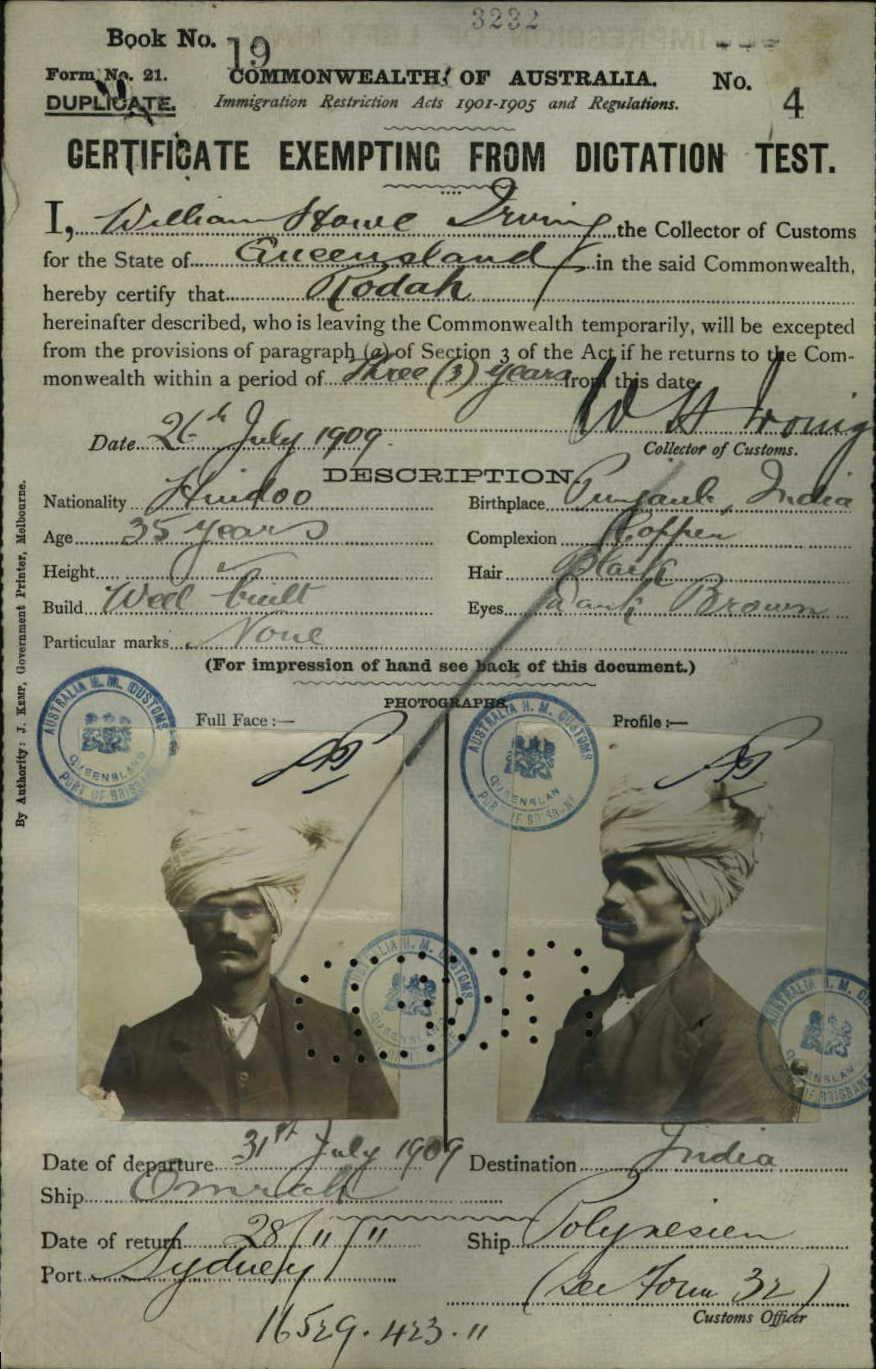 3232
Book No. 19
Form No. 21. COMMONWEALTH OF AUSTRALIA. No. 4
DUPLICATE. Immigration Restriction Acts 1901-1905 and Regulations.
CERTIFICATE EXEMPTING FROM DICTATION TEST.
I, William Howe Irving the Collector of Customs
for the State of Queensland in the said Commonwealth,
hereby certify that Rodah
hereinafter described, who is leaving the Commonwealth temporarily, will be excepted
from the provisions of paragraph (a) of Section 3 of the Act if he returns to the Com-
monwealth within a period of Three (3) years from this date
Date 26th July 1909 W H Irving
Collector of Customs.
DESCRIPTION
Nationality Hindoo Birthplace Punjaub, India
Age 35 years Complexion Copper
Height Hair Black
Build Well built Eyes Dark Brown
Particular marks None
(For impression of hand see back of this document.)
PHOTOGRAPHS
Full Face :— Profile :—
AUSTRALIA H. M. CUSTOMS
QUEENSLAND
PORT OF BRISBANE
AUSTRALIA H. M. CUSTOMS
QUEENSLAN
PORT OF BRISBANE
AUSTRALIA H. M. CUSTOMS
QUEENSLAND
AUSTRALIA H. M. CUSTOMS
QUEENSLAND
OF BRISBANE
Date of departure 31st July 1909 Destination India
Ship Omrah
Date of return 28/11/11 Ship Polynesien
Port Sydney
(see Form 32)
Customs Officer
11529.423.11
By Authority: J. Kemp, Government Printer, Melbourne.